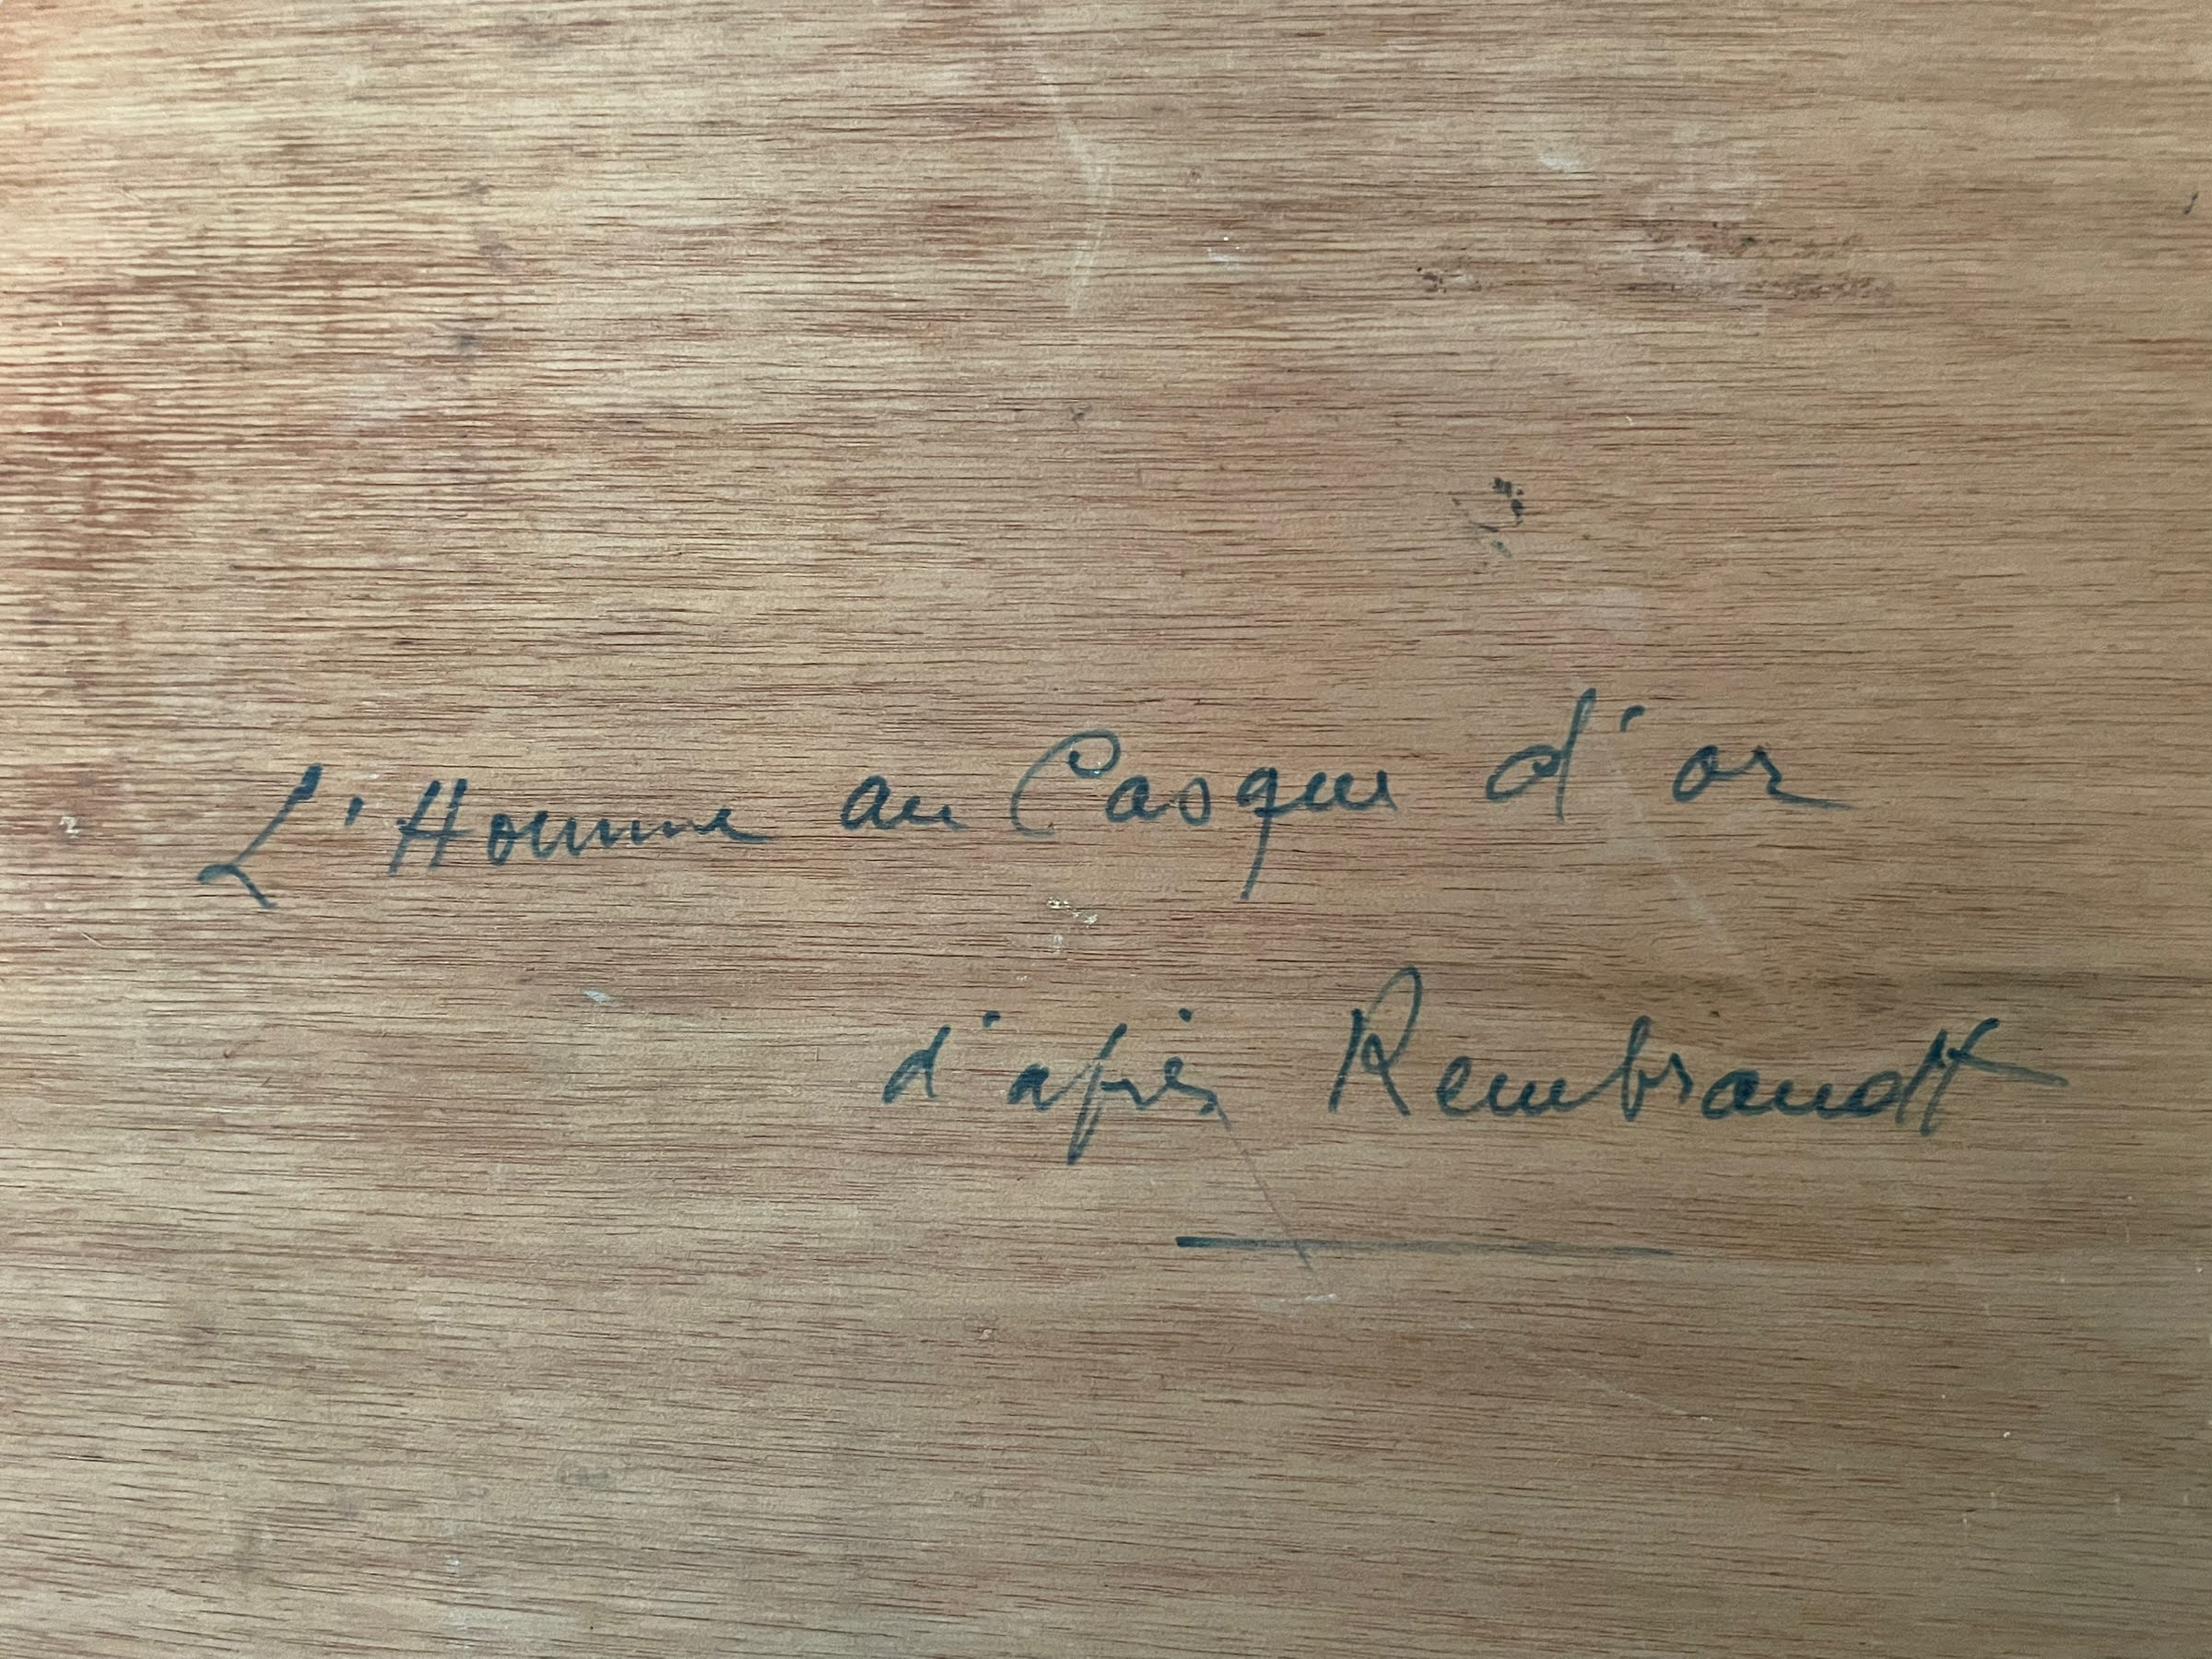 L'Homme au Casque d'or
d'après Rembrandt